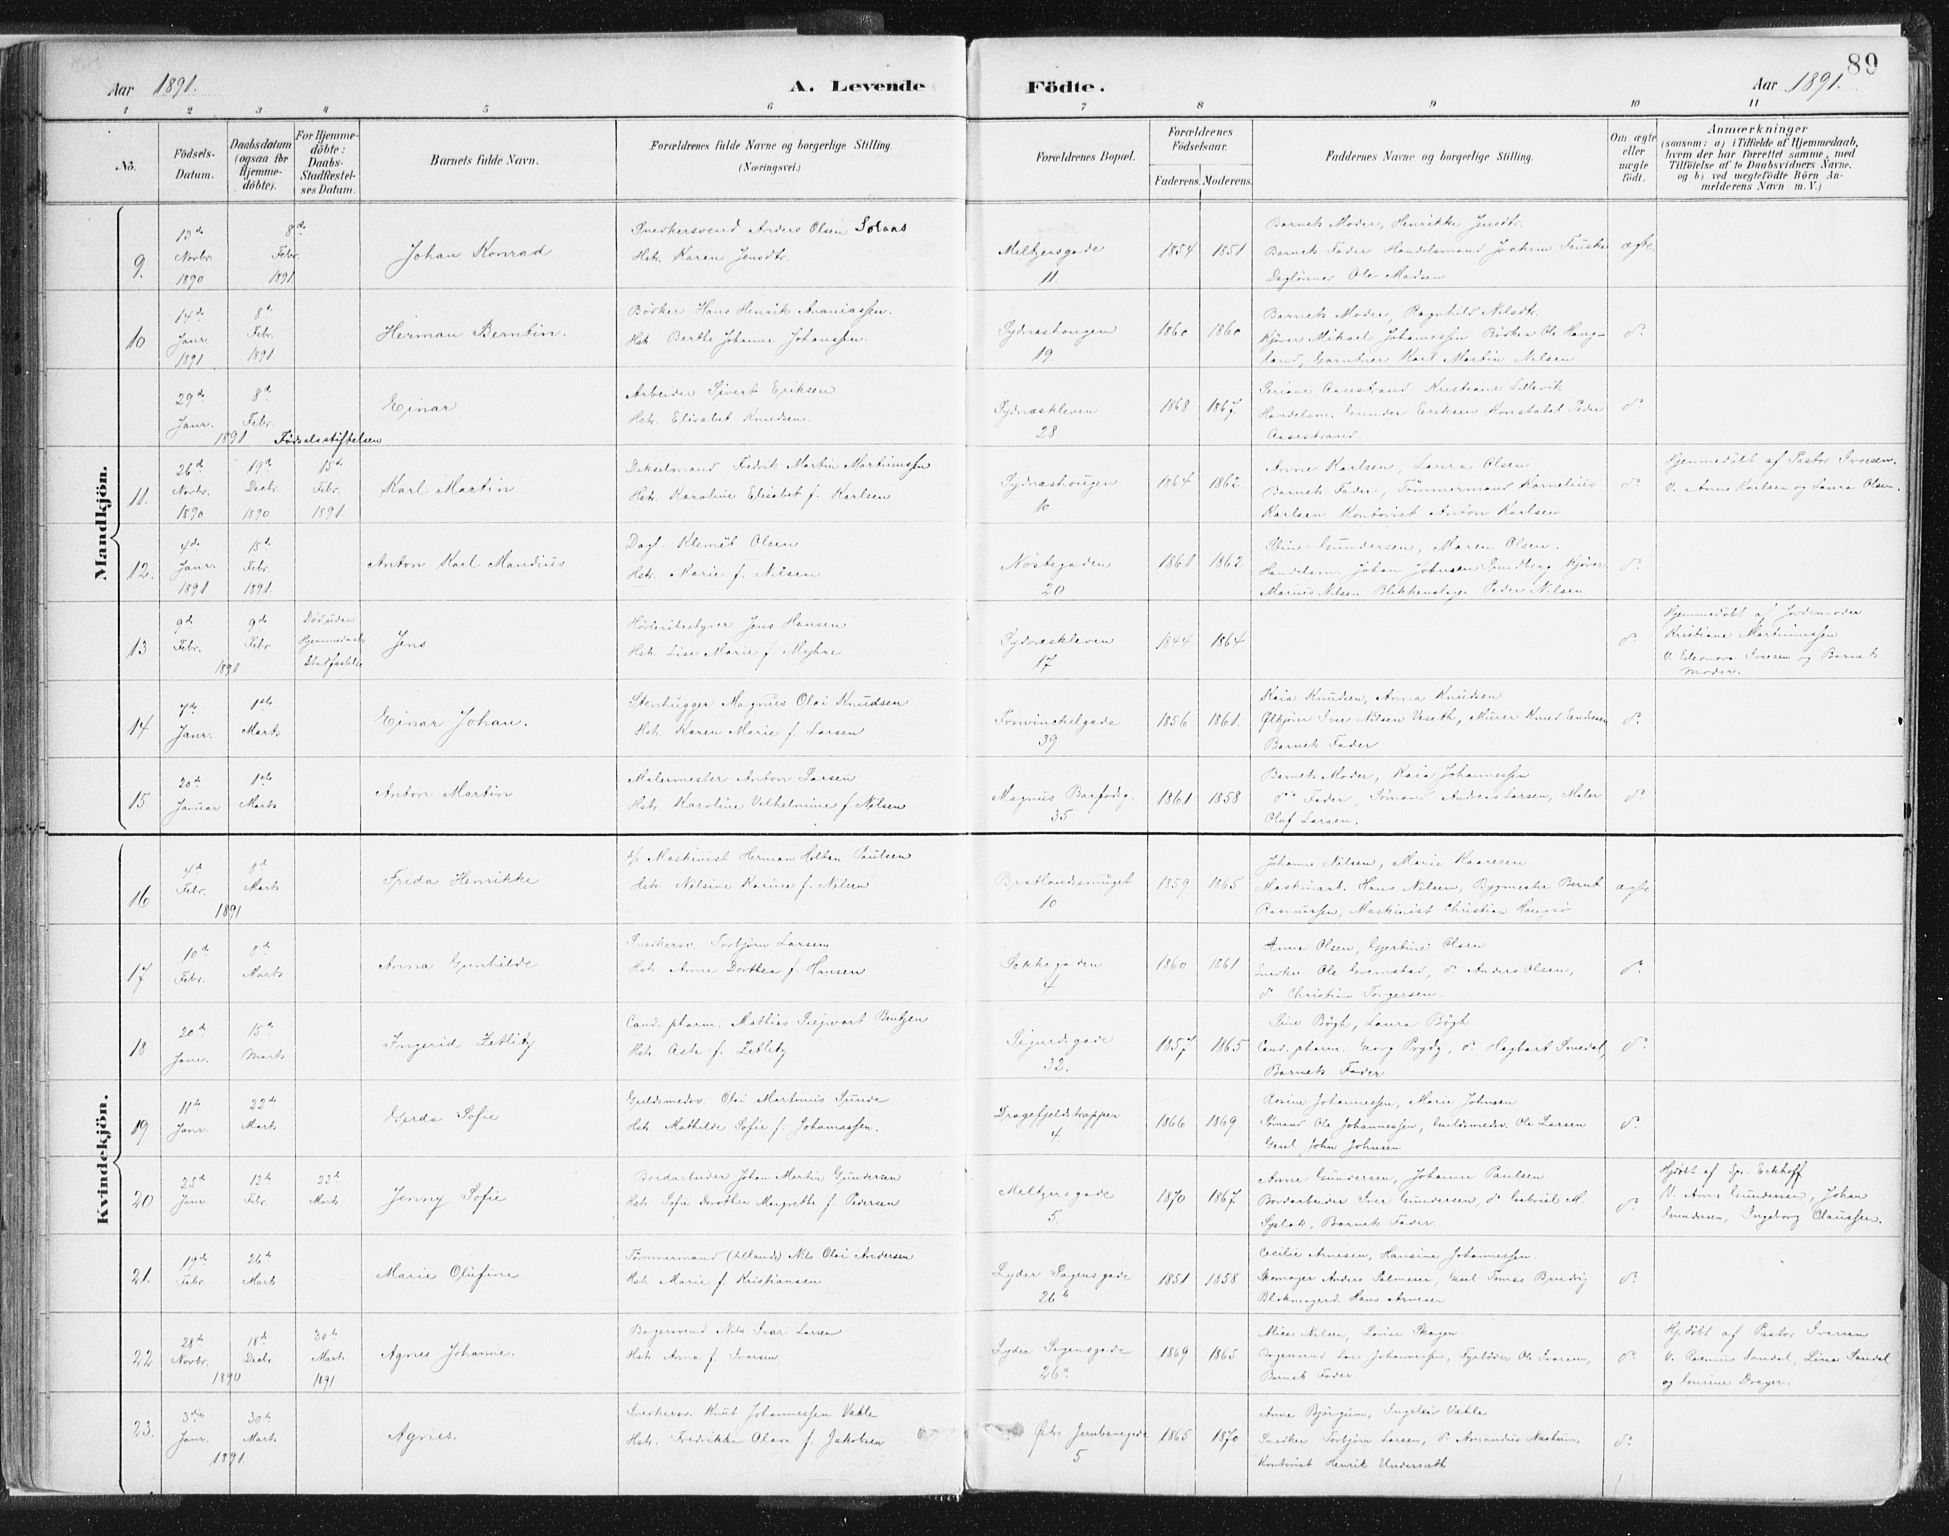 89
Aar 1891. A. Levende Födte. Aar 1891.
1 2 3 4 5 6 7 8 9 10 11
No.
Födsels-Datum.
Daabsdatum (ogsaa for Hjemme-döbte).
For Hjemme-döbte: Daabs-Stadfæstel-ses Datum.
Barnets fulde Navn.
Forældrenes fulde Navne og borgerlige Stilling.
(Næringsvei.)
Forældrenes Bopæl.
Forældrenes Födselsaar.
Faderens. Moderens.
Faddernes Navne og borgerlige Stilling.
Om ægte eller uægte födt.
Anmærkninger
(saasom: a) i Tilfælde af Hjemmedaab, hvem der har forrettet samme, med Tilföielse af to Daabsvidners Navne, og b) ved uægtefödte Börn An-melderens Navn m. V.)
Mandkjön.
9. 13de Novbr. 1890 8de Febr. 1891 Johan Konrad
Snedkersvend Anders Olsen Solaas
Hstr. Karen Jensdtr.
Meltzersgade 11. 1854 1851
Barnets Moder, Henrikke Jensdtr.
Barnets Fader Handelsmand Joakim
Daglönner Ole Madsen
ægte
10 14de Janr. 1891 8de Febr. 1891 Herman Berntin.
Bödker Hans Henrik Ananiassen.
Hstr. Berthe Johanne Johanssen.
Sydneshougen 19. 1860 1860
Barnets Moder, Ragnhild Nilsdtr.
Kjører Mikael Johannessen Bödker Ole Houg-
land, Gartner Karl Martin Nilsen
do
29de Janr. 8de Febr. 1891 Einar
Födselsstiftelsen
Arbeider Sivert Eriksen
Hstr. Elisabet Knudsen.
Sydneskleven 28 1868 1867.
Aasestrand Kristiane Lillevik
Handelsm. Gunder Eriksen Konstabel Peder
Aasestrand.
do
11. 26de Novbr. 1890 19de Decbr. 1890 15de Febr. 1891. Karl Martin
Fredrik Martin Martinussen
Hstr. Karoline Elisabet f. Karlsen
Sydneshougen 10 1864 1862.
Anne Karlsen, Laura Olsen
Barnets Fader, Tömmermand Kornelius
Karlsen Kontorist Anton Karlsen
do
Hjemmedöbt af Pastor Iversen.
V. Anne Karlsen og Laura Olsen.
12. 4de Janr. 1891 15de Febr. 1891. Anton Karl Mandius
Dagl. Klemet Olsen
Hstr. Marie f. Nilsen
Nöstegaden 20 1861 1862
Stine Gundersen, Maren Olsen.
Handelsm. Johan Johnsen Sundberg Kjører
Marius Nilsen Blikkenslager Peder Nilsen
do
13 9de Febr. 9de Febr 1891 Död uden Hjemmedaabs Stadfæstelse Jens
Jens Hansen
Hstr. Lise Marie f. Myhre
Sydneskleven 17 1844 1864
do
Hjemmedöbt af Jordemoder
Kristiane Martinussen
V. Eleonora Iversen og Barnets
Moder.
14 7de Janr. 1ste Marts Einar Johan.
Stenhugger Magnus Olai Knudsen
Hstr. Karen Marie f. Larsen
39 1856 1861.
Kaia Knudsen, Anna Knudsen
Iver Nilsen Veseth, Murer Knud
Barnets Fader
do
15 20de Januar 1ste Marts Anton Martin
Malermester Anton Larsen
Hstr. Karoline Vilhelmine f Nilsen
Magnus Barfodg. 35 1861 1858
Barnets Moder, Kaia Johannessen
do Fader, Sömand Andreas Larsen, Maler
Oluf Larsen.
do
Kvindekjön.
16 4de Febr. 8de Marts 1891 Frida Henrikke
Maskinist Herman Holtan Paulsen
Hstr. Nilsine Karine f. Nilsen
Bratlandssmuget 10 1859 1865
Johanne Nilsen, Marie Kaaresen
Maskinart. Hans Nilsen, Bygmester Bernt
Rasmussen, Maskinist Christian
ægte
17 10de Febr. 8de Marts Anna Gunhilde
Snedkersv. Torbjörn Larsen
Hstr. Anne Dorthea f. Hansen
Sekkegaden 4 1860 1861
Anne Olsen, Gjertine Olsen
Snedker Ole Gromstad, do Anders Olsen,
do Christian Torgersen.
do
18 20de Janr. 15de Marts Ingerid Zetlitz
Cand. pharm. Mathias Sejwart Bentzen
Hstr. Asta f. Zetlitz
Sigurdsgade 32. 1857 1865
Sine Bögh, Laura Bögh
Cand. pharm. Georg Prydz, do Hagbart Smedal,
Barnets Fader
do
19 10de Janr. 22de Marts Gerda Sofie
Guldsmedsv. Olai Martinus Sjurde
Hstr. Mathilde Sofie f. Johannessen.
Dragefjeldstrappen 4. 1866 1869
Rosine Johannessen, Marie Johnsen
Sömand Ole Johannessen, Guldsmedsv. Ole Larsen
Gesel John Johnsen
do
20 25de Janr 12te Febr. 22de Marts Jenny Sofie
Bordarbeider Johan Martin Gundersen
Hstr. Sofie Dorothea Margrethe f. Pedersen
Meltzersgade 5. 1870 1867
Anne Gundersen, Johanne Paulsen
Bordarbeider Iver Gundersen, do Gabriel M.
Barnets Fader.
do
Hjdöbt af Spr. Eckhoff
V. Anne Gundersen, Johan
Gundersen, Ingeborg Claussen.
21. 19de Febr. 26de Marts Marie Olufine
Tömmermand Nils Olai Andersen
Hstr. Marie f. Kristiansen
Lyder Sagensgade 26b 1851 1858
Cecilie Arnesen, Hansine Johannessen.
Skomager Anders Salmesen, Gesel Tomas
Hans Arnesen
do
22 28de Novbr. 18de Decbr. 1890 30te Marts 1891 Agnes Johanne.
Bagersvend Nils Ivar Larsen
Hstr. Anna f. Iversen
Lyder Sagensgade 26a. 1869 1865
Alice Nilsen, Lovise Skagen
Bagersvend Lars Johannessen, Ole Iversen,
Barnets Fader.
do
Hj.döbt af Pastor Iversen
V. Sandal, Lina Sandal
og Dreyer.
23. 3die Janr. 30te Marts 1891. Agnes.
Snedkersv. Knut Johannessen Vahle
Hstr. Fredrikke Olava f. Jakobsen
Östre Jernbanegade 5 1865 1870
Anne Björgum, Ingeleiv Vahle
Snedker Torbjörn Larsen, do Amandus
Kontorist Henrik Undersæth
do